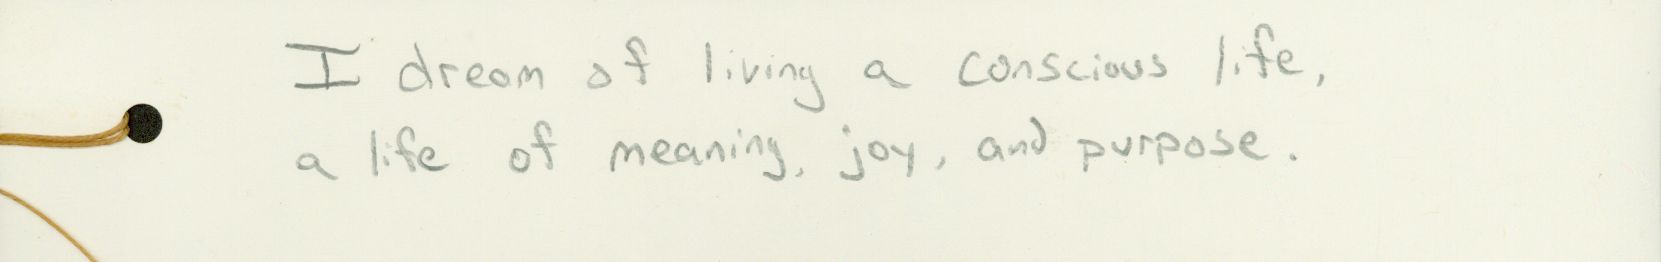 I dream of living a conscious life,
a life of meaning, joy, and purpose.